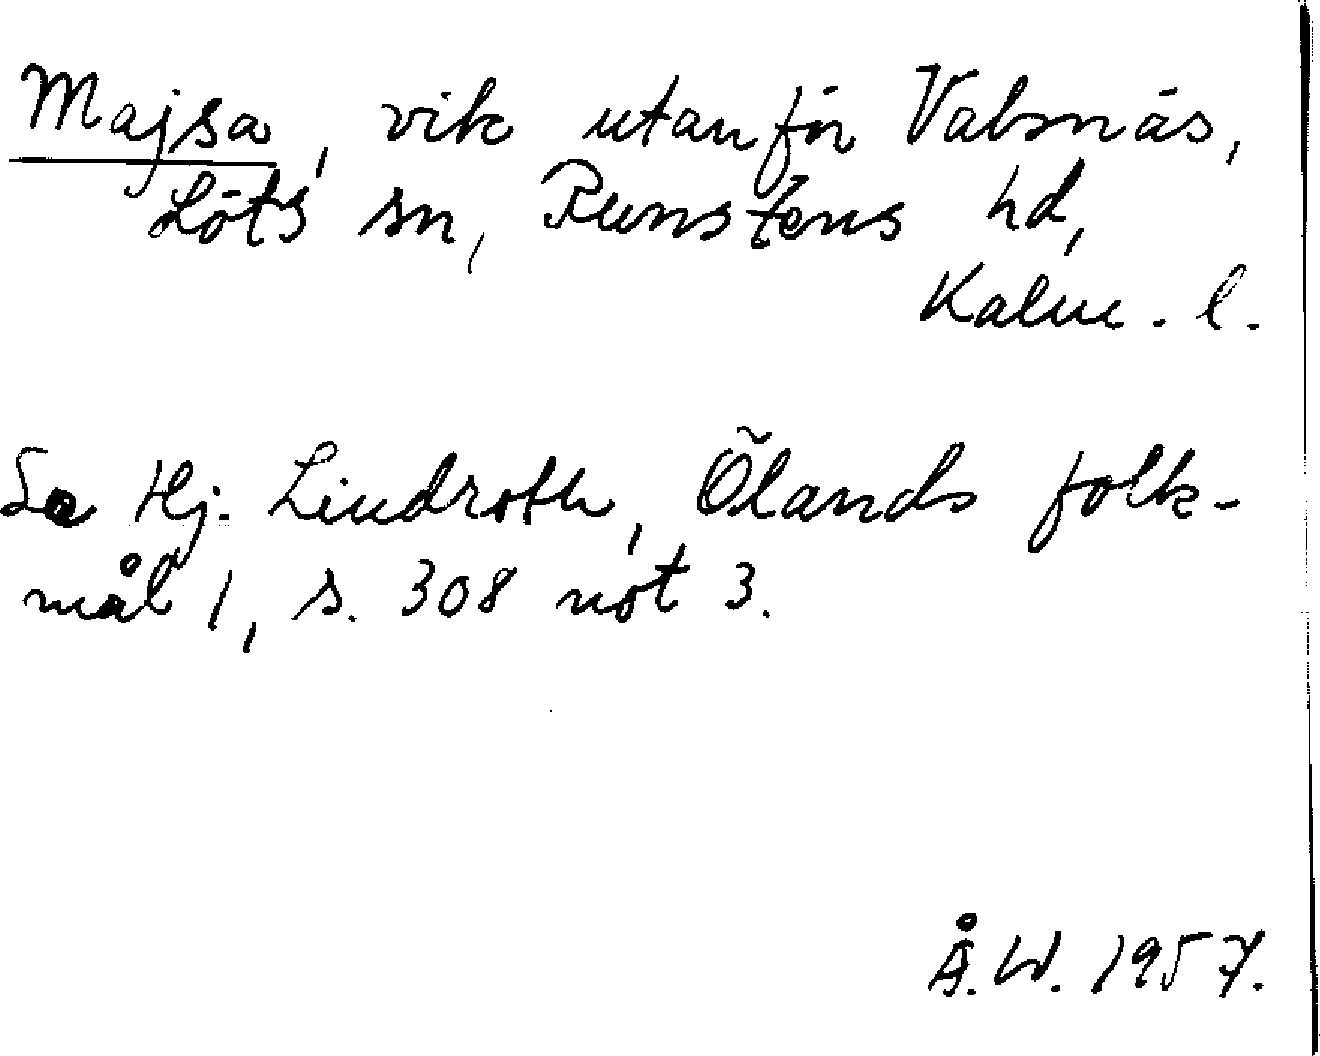 Majsa, vik utanför Valsnäs,
Löts sn, Runstens hd,
Kalm. l.
Se Hj. Lindroth, Ölands folk-
mål 1, s. 308 not 3.
Å. W. 1957.